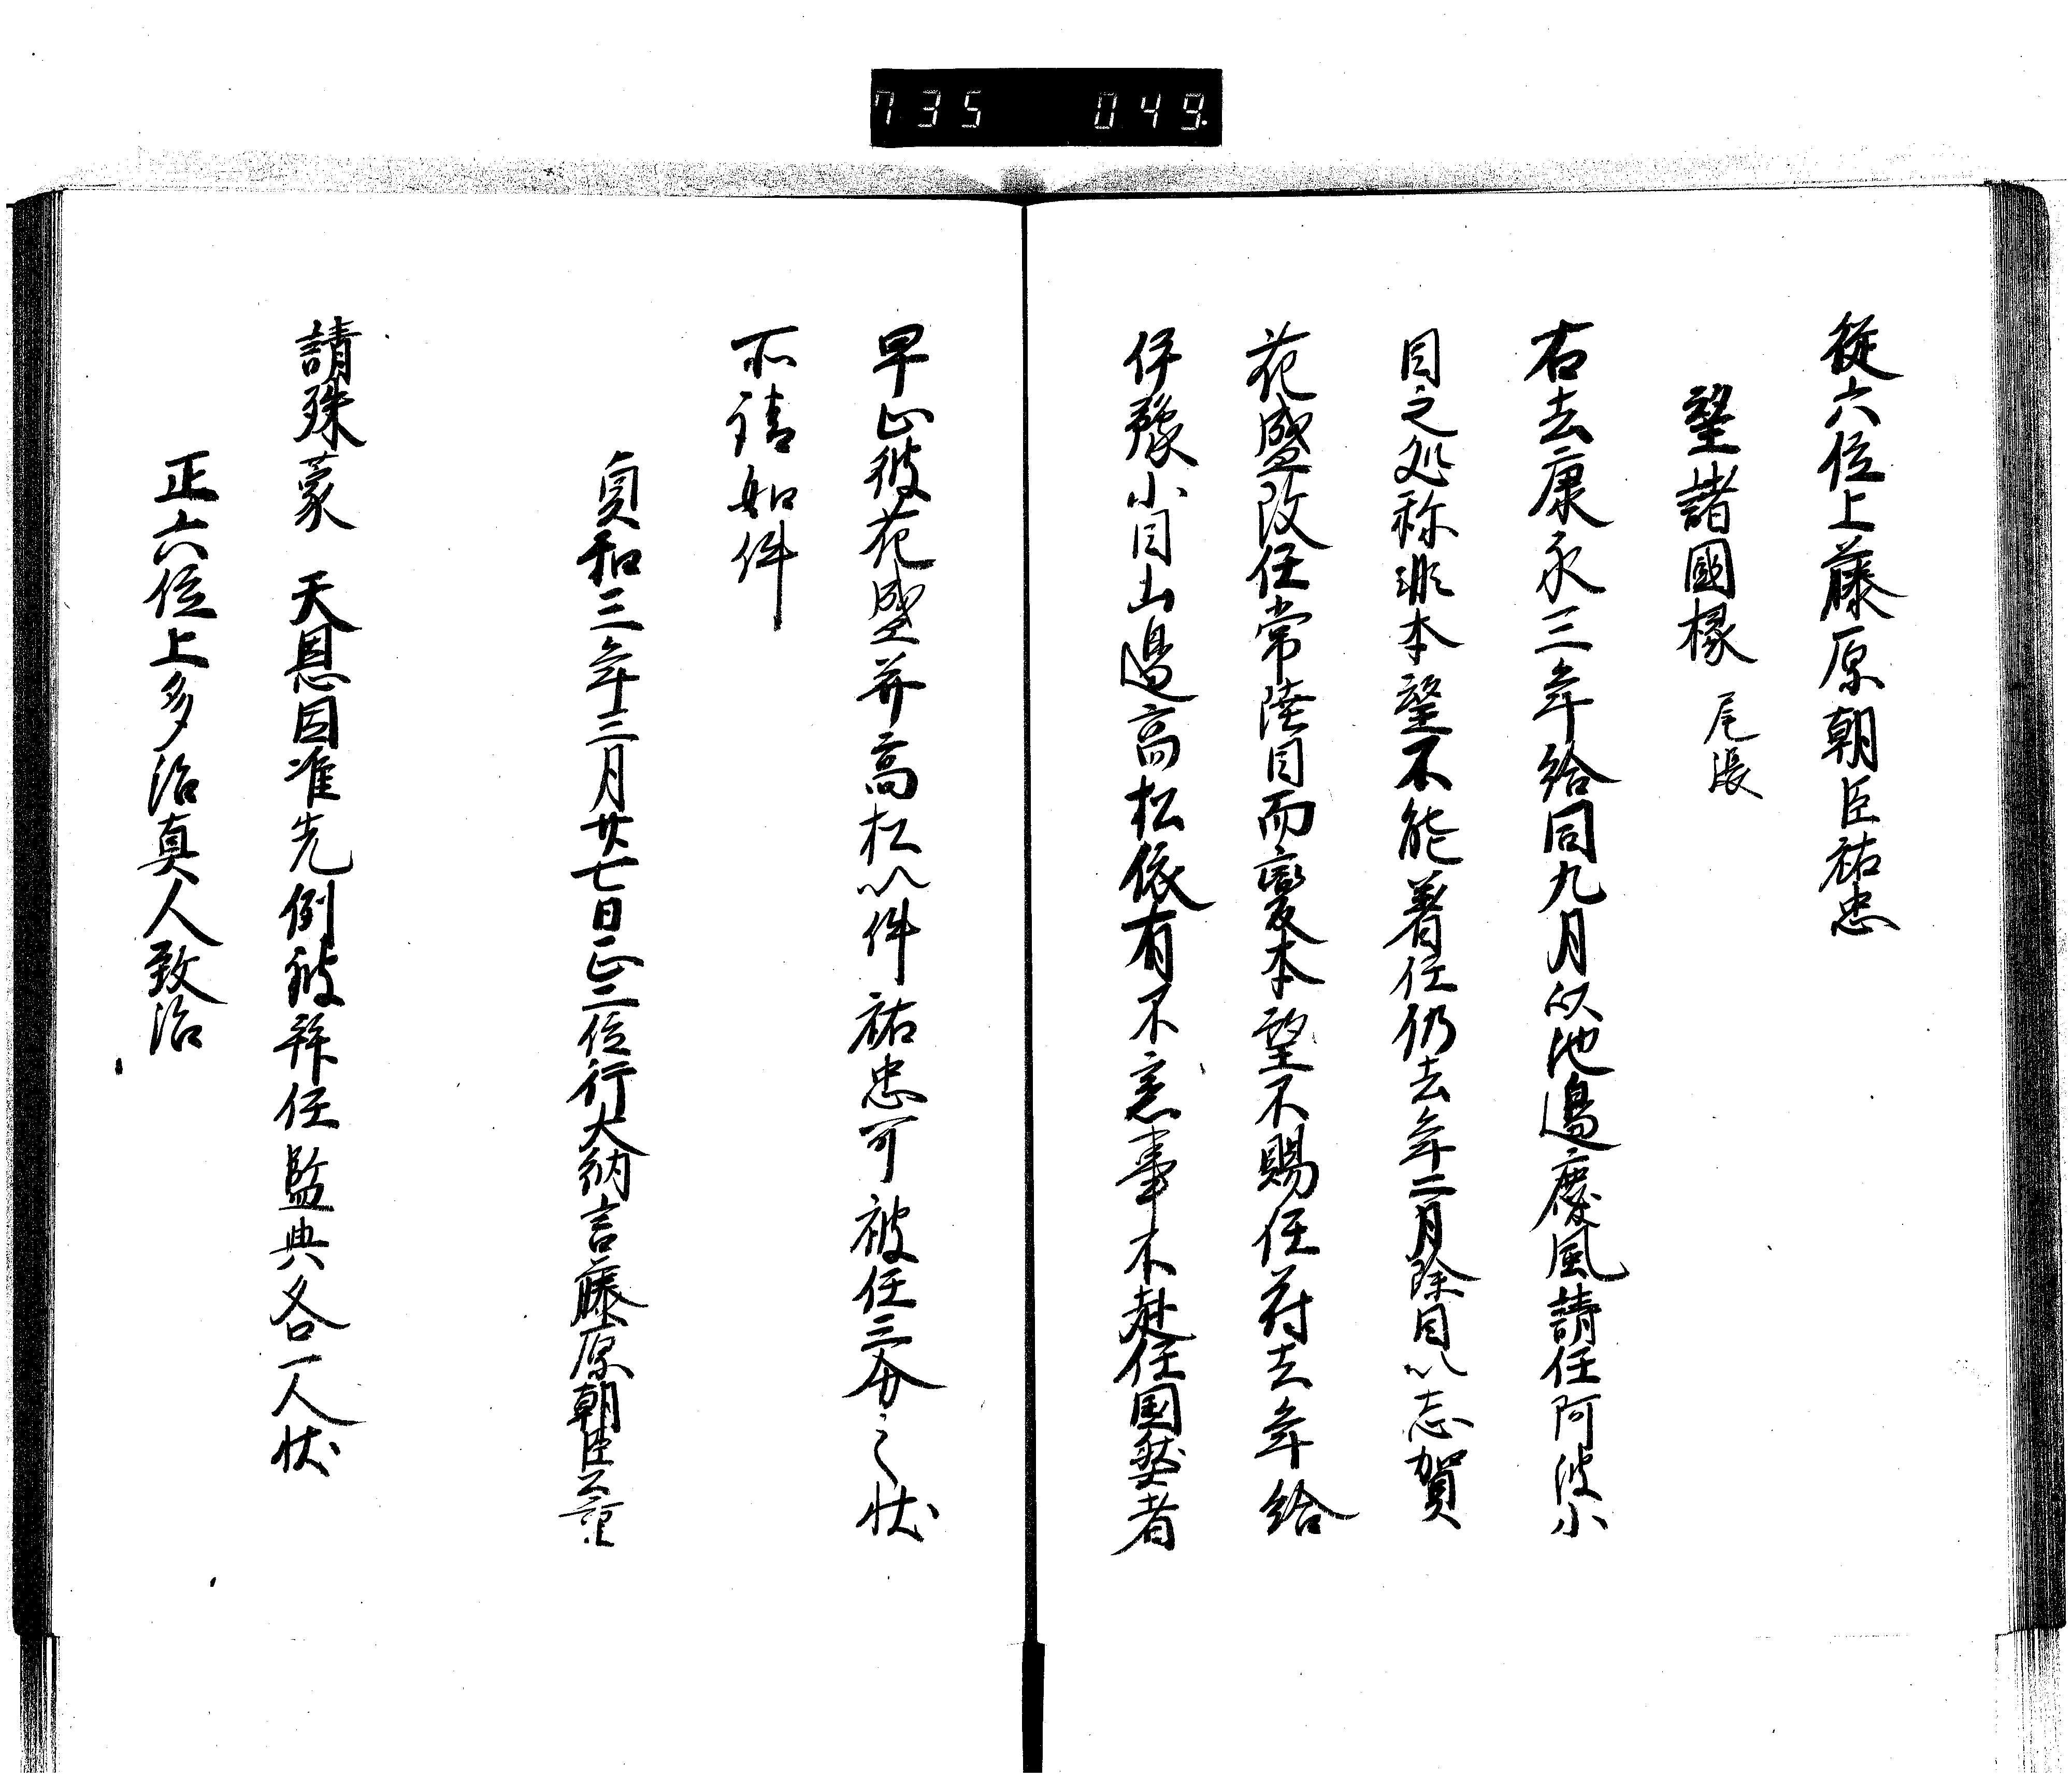 735 049
従六位上藤原朝臣祐忠
望諸國掾 尾張
右去康永三年給同九月以池邊慶風請任阿波小
目之処称非本望不能著任仍去年二月除目以志賀
花盛改任常陸目而変本望不賜任符去年給
伊豫小目山邊高松依有不意事不赴任国然者
早止彼花盛并高松以件祐忠可被任三分之状
所請如件
貞和三年三月廿七日正二位行大納言藤原朝臣公重
請殊蒙 天恩因准先例被拜任監典各一人状
正六位上多治真人致治